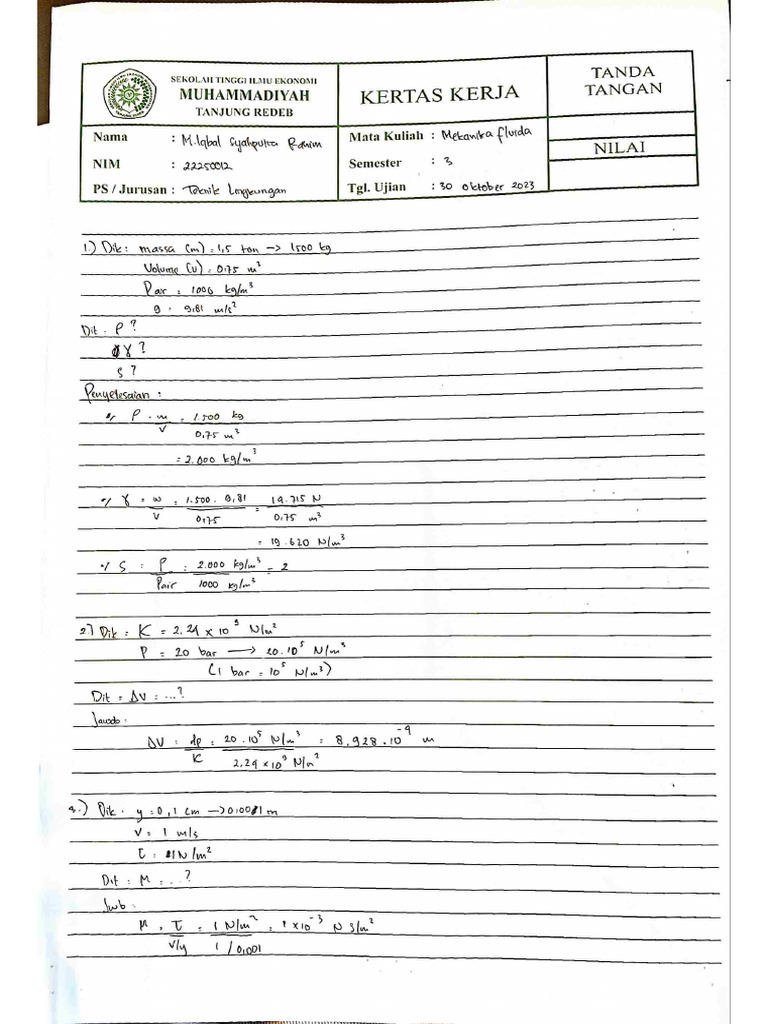 SEKOLAH TINGGI ILMU EKONOMI
MUHAMMADIYAH
TANJUNG REDEB
KERTAS KERJA
TANDA
TANGAN
Nama : M. Iqbal Syahputra
Mata Kuliah : Mekanika fluida
NILAI
NIM : 22250012
Semester : 3
PS / Jurusan : Teknik Lingkungan
Tgl. Ujian : 30 oktober 2023
1.) Dik : massa (m) = 1,5 ton -> 1500 kg
Volume (V) = 0,75 m³
ρair = 1000 kg/m³
g = 9,81 m/s²
Dit . ρ ?
γ ?
S ?
Penyelesaian :
•/ ρ = m/V = 1.500 kg / 0,75 m³
= 2.000 kg/m³
•/ γ = w/V = 1.500 . 9,81 / 0,75 = 14.715 N / 0,75 m³
= 19.620 N/m³
•/ S = ρ/ρair = 2.000 kg/m³ / 1000 kg/m³ = 2
2.) Dik = K = 2,24 x 10⁹ N/m²
P = 20 bar -> 20.10⁵ N/m³
(1 bar = 10⁵ N/m³)
Dit = ΔV = ...?
Jawab :
ΔV = dp/K = 20.10⁵ N/m³ / 2,24 x 10⁹ N/m² = 8,928.10⁻⁴ m
3.) Dik . y = 0,1 cm -> 0,001 m
V = 1 m/s
τ = 1 N/m²
Dit = μ = ...?
Jwb :
μ = τ / v/y = 1 N/m² / 1/0,001 = 1x10⁻³ N s/m²